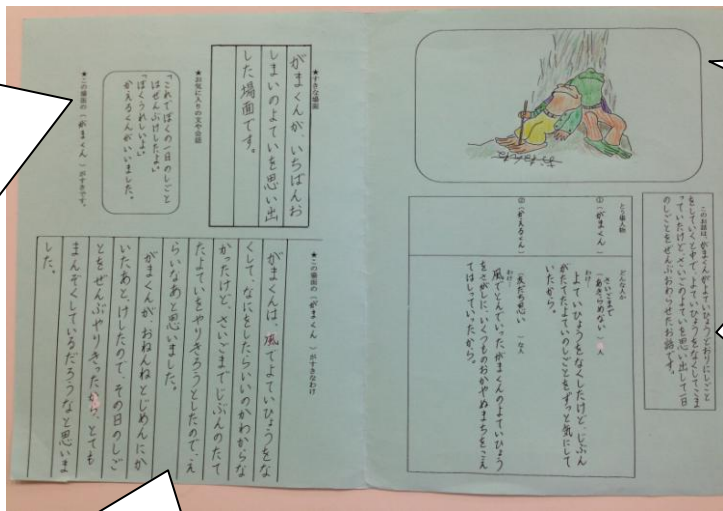 このお話は、がまくんがよていひょうどおりにしごと
をしていくと中で、よていひょうをなくしてこま
っていたけど、さいごのよていを思い出して一日
のしごとをぜんぶおわらせたお話です。
とう場人物
どんな人か
①(がまくん)
さいごまで
(あきらめない)人
わけ
よていひょうをなくしたけど、じぶん
がたてたよていのしごとをずっと気にして
いたから。
②(かえるくん)
(友だち思い)な人
わけ
風でとんでいったがまくんのよていひょう
をさがしに、いくつものおかやぬまちをこえ
てはしっていったから。
★すきな場面
がまくんが、いちばんお
しまいのよていを思い出
した場面です。
★お気に入りの文や会話
「これでぼくの一日のしごと
はぜんぶけしたよ。」
「ぼくうれしいよ。」
かえるくんがいいました。
★この場面の(がまくん)がすきです。
★この場面の(がまくん)がすきなわけ
がまくんは、風でよていひょうをな
くして、なにをしたらいいのかわからな
かったけど、さいごまでじぶんのたて
たよていをやりきろうとしたので、え
らいなあと思いました。
がまくんが、おねんねとじめんにか
いたあと、けしたので、その日のしご
とをぜんぶやりきったから、とても
まんぞくしているだろうなと思いま
した。